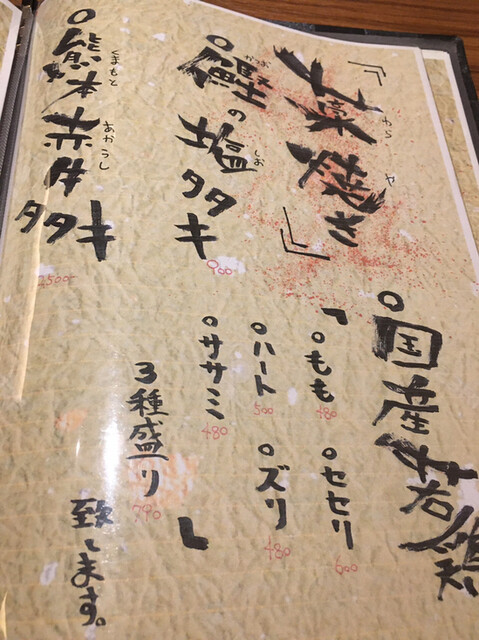 『藁焼き』
わらや
○鰹の塩タタキ
かつお
しお
900
○熊本赤牛タタキ
くまもと
あかうし
1500
○国産若鶏
「○もも
480
○セセリ
600
○ハート
500
○ズリ
480
○ササミ
480
3種盛り」
790
致します。